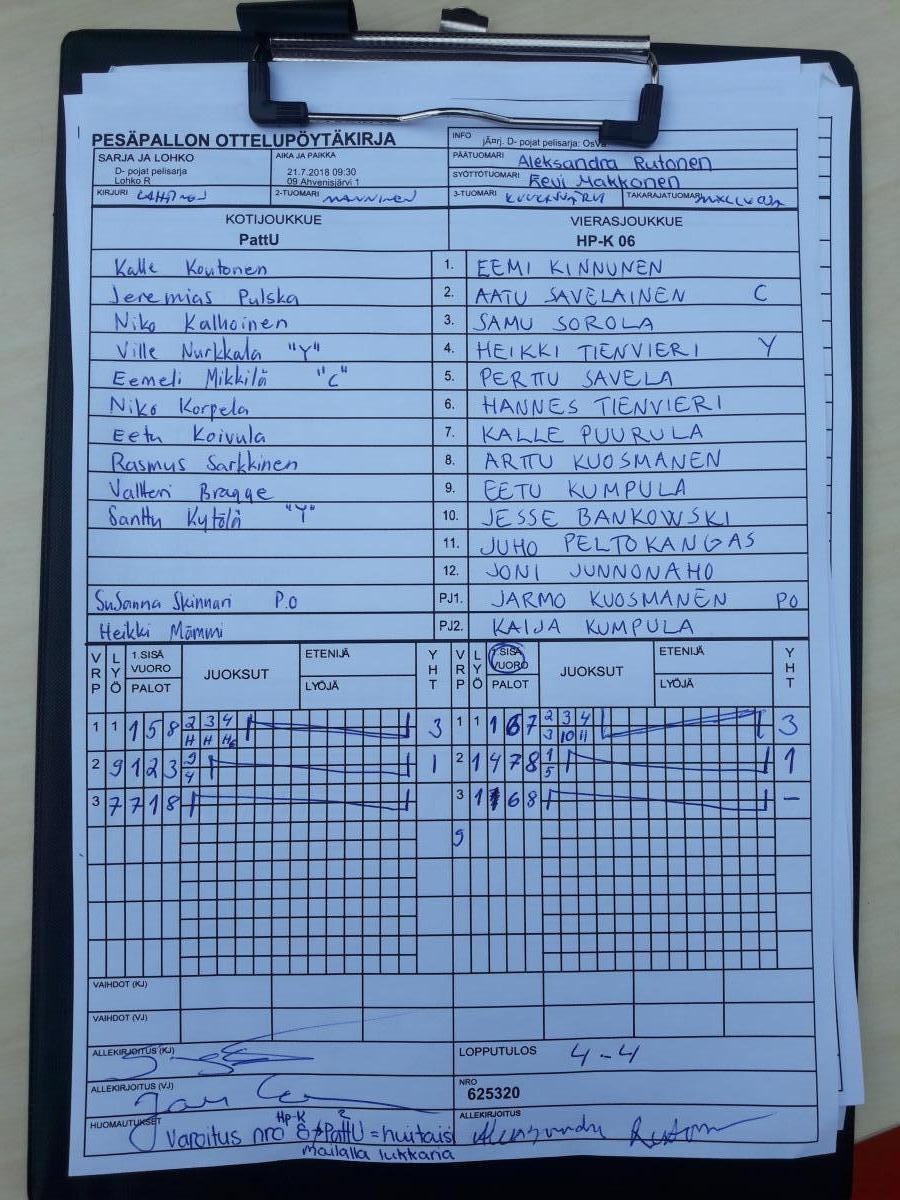 PESÄPALLON OTTELUPÖYTÄKIRJA
INFO jÄ¤rj. D- pojat pelisarja: OsVa
SARJA JA LOHKO
D- pojat pelisarja
Lohko R
AIKA JA PAIKKA
21.7.2018 09:30
09 Ahvenisjärvi 1
PÄÄTUOMARI Aleksandra Rutonen
SYÖTTÖTUOMARI Eevi Makkonen
KIRJURI
2-TUOMARI MANNINEN
3-TUOMARI
TAKARAJATUOMARI
KOTIJOUKKUE
PattU
VIERASJOUKKUE
HP-K 06
Kalle Koutonen 1. EEMI KINNUNEN
Jeremias Pulska 2. AATU SAVELAINEN C
Niko Kalhoinen 3. SAMU SOROLA
Ville Nurkkala "Y" 4. HEIKKI TIENVIERI Y
Eemeli Mikkilä "C" 5. PERTTU SAVELA
Niko Korpela 6. HANNES TIENVIERI
Eetu Koivula 7. KALLE PUURULA
Rasmus Sarkkinen 8. ARTTU KUOSMANEN
Valtteri Bragge 9. EETU KUMPULA
Santtu Kytölä "Y" 10. JESSE BANKOWSKI
11. JUHO PELTOKANGAS
12. JONI JUNNONAHO
Susanna Skinnari P.O PJ1. JARMO KUOSMANEN PO
Heikki Mämmi PJ2. KAIJA KUMPULA
VRP LYÖ 1.SISÄ VUORO PALOT JUOKSUT ETENIJÄ LYÖJÄ YHT VRP LYÖ 1.SISÄ VUORO PALOT JUOKSUT ETENIJÄ LYÖJÄ YHT
1 1 1 5 8 2 3 4 3 1 1 1 6 7 2 3 4 3
H H 3 10 11
2 9 1 2 3 1 2 1 4 7 8 1 1
4 5
3 7 7 1 8 3 1 6 8 –
9
VAIHDOT (KJ)
VAIHDOT (VJ)
ALLEKIRJOITUS (KJ)
LOPPUTULOS 4-4
ALLEKIRJOITUS (VJ)
NRO
625320
HUOMAUTUKSET
HP-K 2
Varoitus nro 8 PattU = huitaisi
mailalla lukkaria
ALLEKIRJOITUS